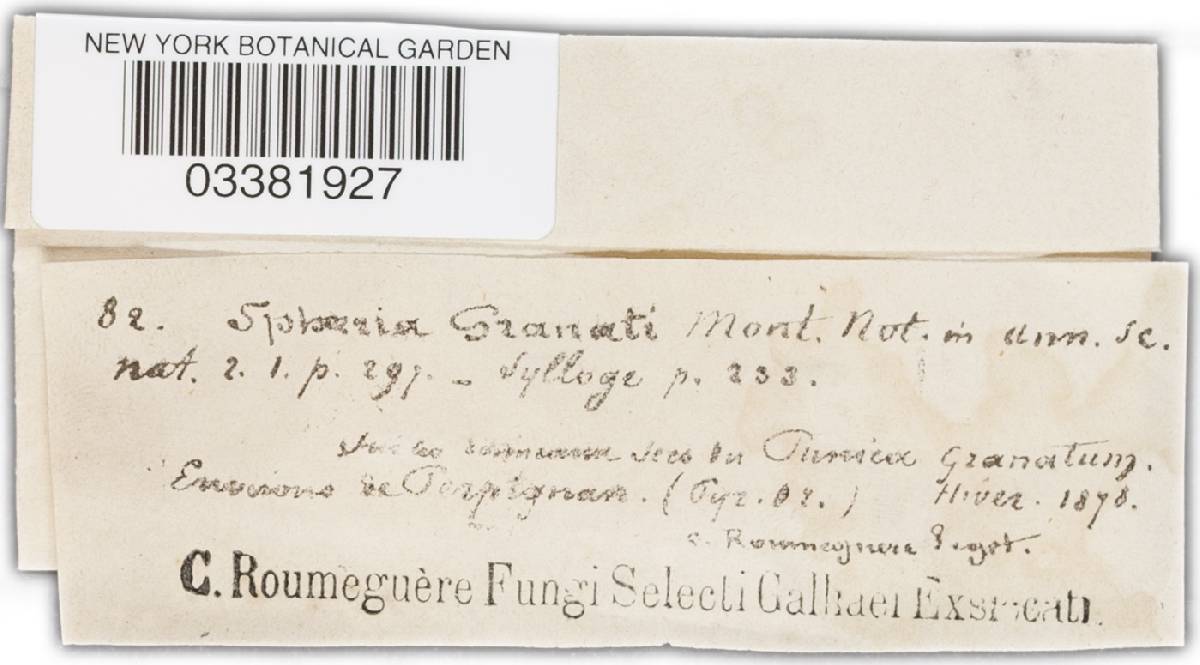 NEW YORK BOTANICAL GARDEN
03381927
82. Sphæria Granati Mont. Not. in Ann. Sc.
nat. 2. 1. p. 297. - Sylloge p. 233.
Sur les rameaux secs du Punica Granatum.
Environs de Perpignan. (Pyr. Or.) Hiver. 1878.
C. Roumeguere
C. Roumeguère Fungi Selecti Galliaei Exsiccati.